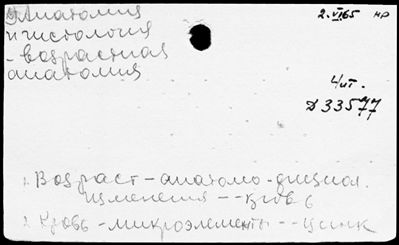 Анатомия
и гистология
- возрастная
анатомия
2.VI65 нр
Чит.
Д 33577
1. Возраст - анатомо-физиол.
изменения -- кровь
2. Кровь - микроэлементы -- цинк